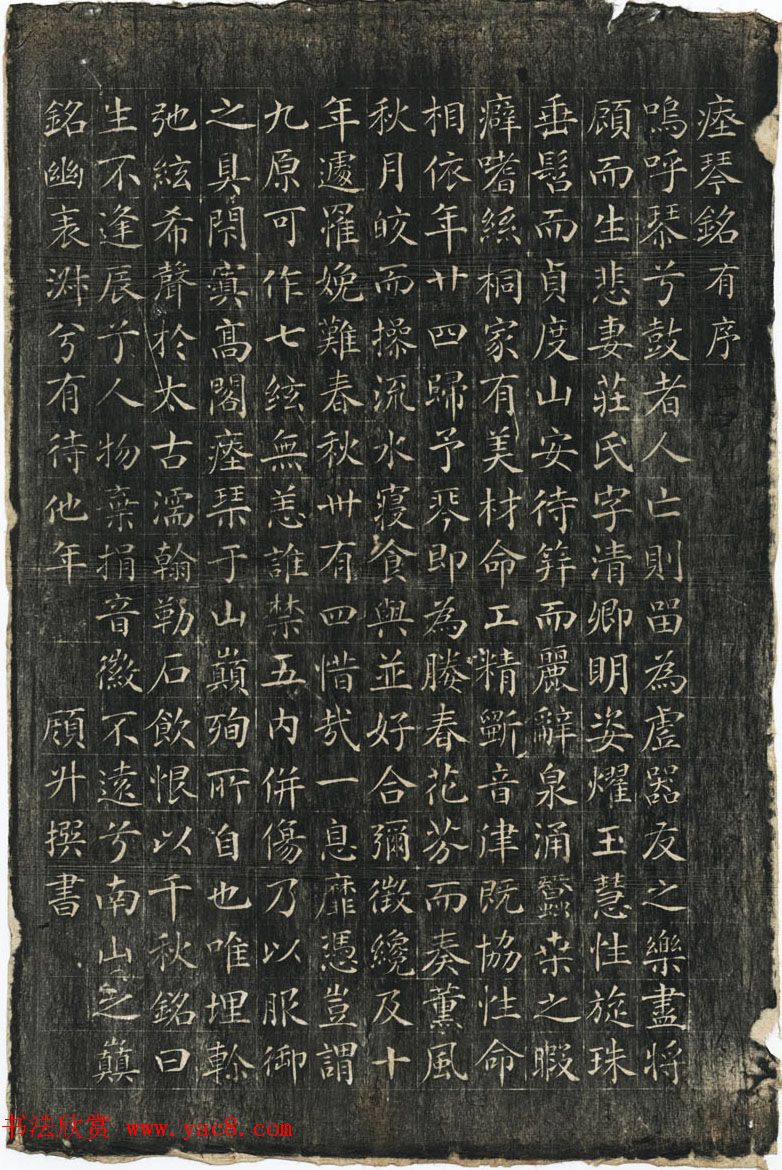 瘞琴銘有序
嗚呼琴兮鼓者人亡則畱為虛器友之樂盡將
顧而生悲妻莊氏字清卿明姿燿玉慧性旋珠
垂髫而貞度山安待笄而麗辭泉涌蠶桑之暇
癖嗜絲桐家有美材命工精斲音律既協性命
相依年廿四歸予琴即為媵春花芬而奏薰風
秋月皎而操流水寢食與並好合彌徵纔及十
年遽罹娩難春秋卅有四惜哉一息靡憑豈謂
九原可作七絃無恙誰禁五內併傷乃以服御
之具閑寘高閣瘞琴于山巔殉所自也唯埋榦
弛絃希聲於太古濡翰勒石飲恨以千秋銘曰
生不逢辰兮人物棄捐音徽不遠兮南山之巔
銘幽表淋兮有待他年 顧升撰書
书法欣赏 www.yac8.com